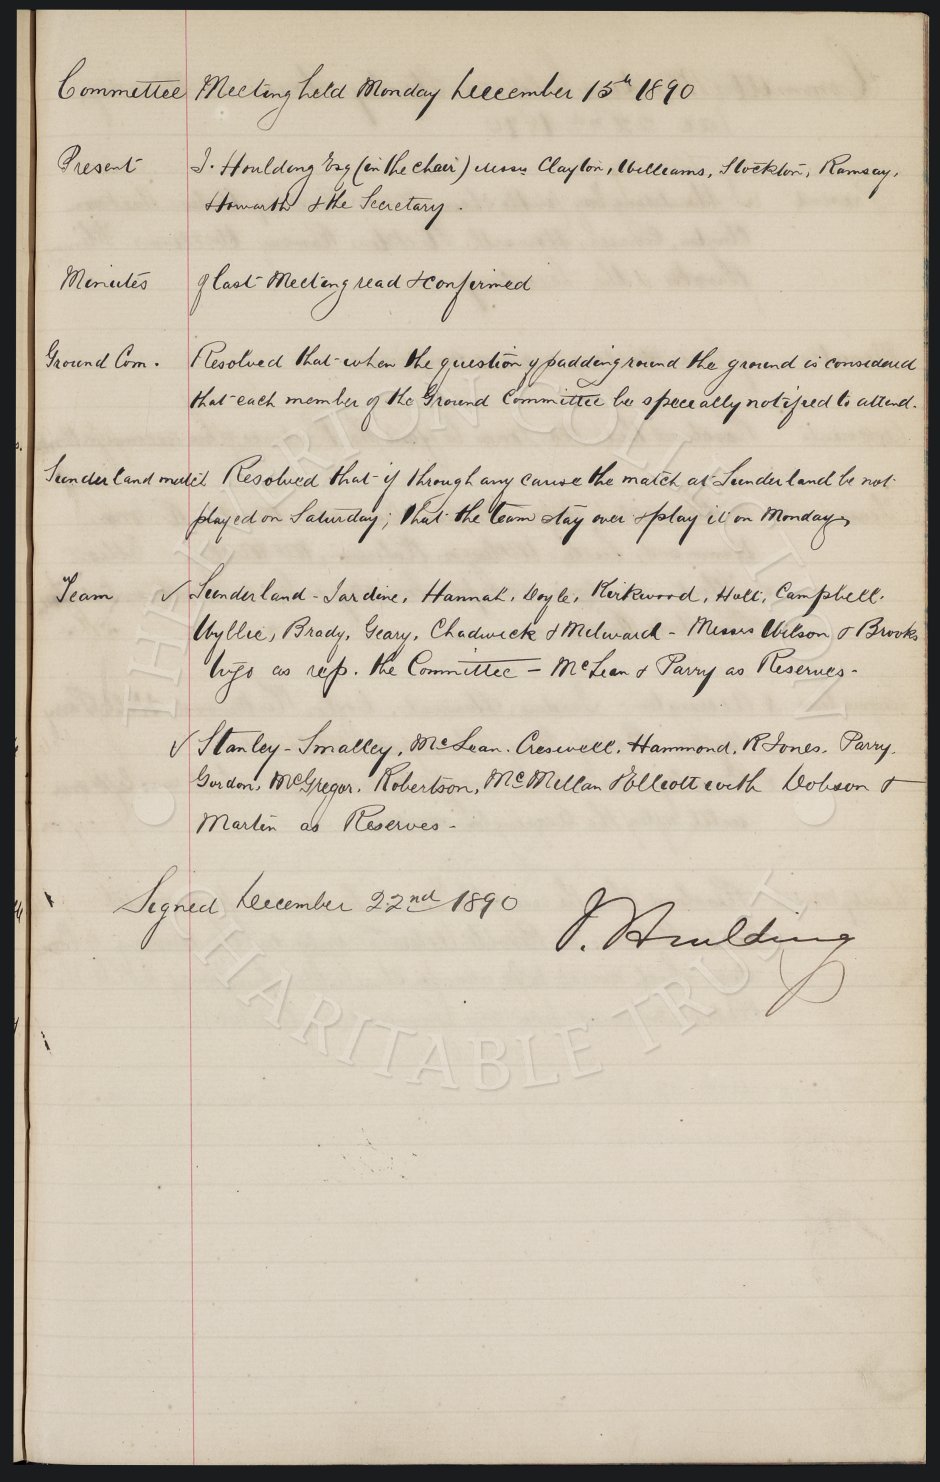 Committee Meeting held Monday December 15th 1890
Present J. Houlding Esq (in the chair) Messrs Clayton, Williams, Stockton, Ramsay,
Howarth & the Secretary.
Minutes of last Meeting read & confirmed
Ground Com. Resolved that when the question of padding round the ground is considered
that each member of the Ground Committee be specially notified to attend.
Sunderland match Resolved that if through any cause the match at Sunderland be not
played on Saturday; that the team stay over & play it on Monday
Team ✓ Sunderland - Jardine, Hannah, Doyle, Kirkwood, Holt, Campbell.
Wyllie, Brady, Geary, Chadwick & Milward - Messrs Wilson & Brooks
to go as rep. the Committee - McLean & Parry as Reserves -
✓ Stanley - Smalley, McLean. Creswell, Hammond, R Jones. Parry.
Gordon, McGregor, Robertson, McMillan & Elliott with Dobson &
Martin as Reserves -
Signed December 22nd 1890
J. Houlding
THE EVERTON COLLECTION
CHARITABLE TRUST